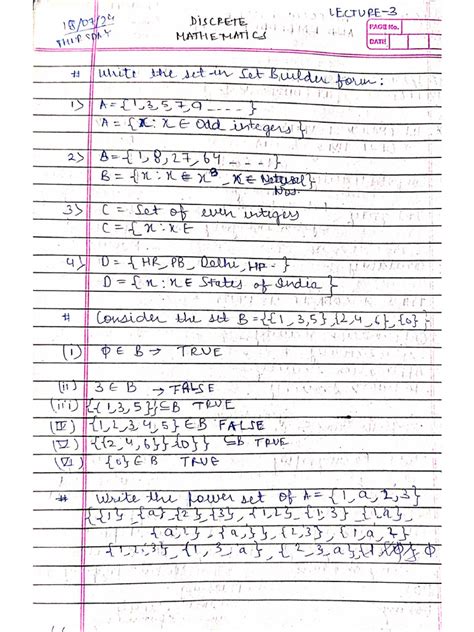 LECTURE-3
18/07/24
THURSDAY
DISCRETE
MATHEMATICS
PAGE No.
DATE
# Write the set in Set Builder form:
1) A = {1, 3, 5, 7, 9 ---- }
A = {x : x ∈ Odd integers}
2) B = {1, 8, 27, 64 ---- }
B = {x : x ∈ x³, x ∈ Natural
Nos.
3) C = Set of even integers
C = { x : x ∈
4) D = { HR, PB, Delhi, HP. }
D = { x : x ∈ States of India }
# Consider the set B = {{1, 3, 5}, {2, 4, 6}, {0}}
(i) φ ∈ B → TRUE
(ii) 3 ∈ B → FALSE
(iii) {{1, 3, 5}} ⊆ B TRUE
(IV) {1, 2, 3, 4, 5} ∈ B FALSE
(V) {{2, 4, 6} {0}} ⊆ B TRUE
(VI) {0} ∈ B TRUE
# Write the power set of A = {1, a, 2, 3}
{{1}, {a}, {2}, {3}, {1, 2}, {1, 3}, {1, a},
{a, 2}, {a, 3}, {2, 3}, {1, a, 2}
{1, 2, 3}, {1, 3, a}, {2, 3, a}